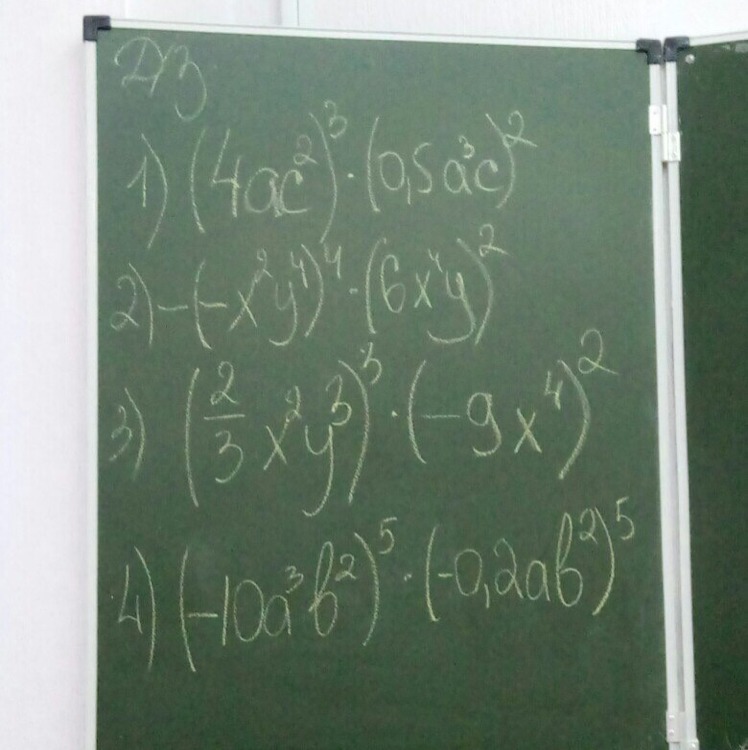 Д/З
1) (4ac²)³ · (0,5a³c)²
2) -(-x²y⁴)⁴ · (6x⁴y)²
3) (2/3 x²y³)³ · (-9x⁴)²
4) (-10a³b²)⁵ · (-0,2ab²)⁵